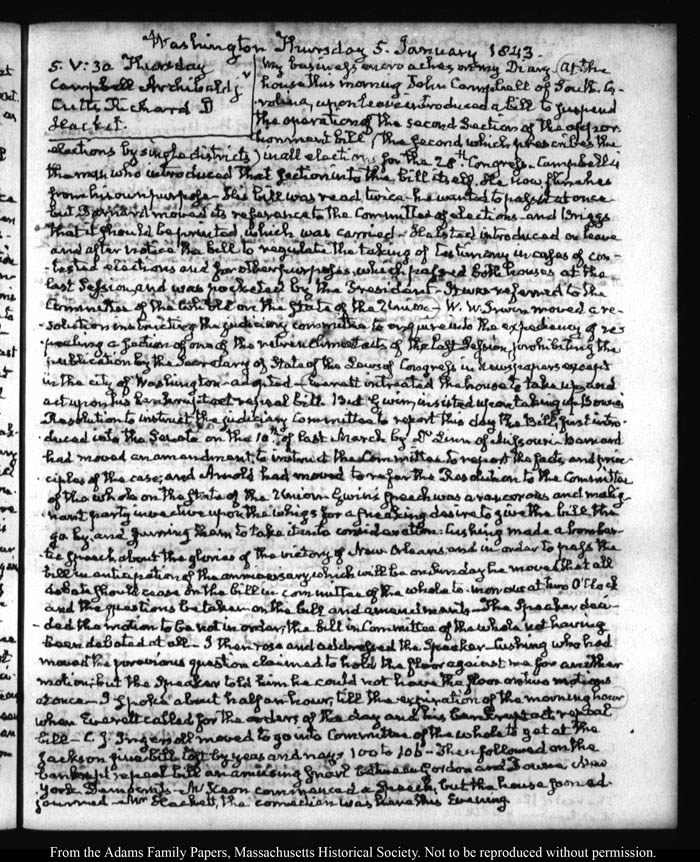 Washington Thursday 5. January 1843.
5. V: 30 Thursday
Campbell Archibald
Cutts Richard D
Hacket.
My business encroaches on my Diary. At the
house this morning John Campbell of South Ca-
rolina, upon leave introduced a bill to suspend
the operation of the second Section of the appor-
tionment bill (the second which prescribes the
elections by single districts) in all elections for the 28th Congress. Campbell is
the man who introduced that section into the bill itself. He now flinches
from his own purpose. His bill was read twice. he wanted to pass it at once
but Barnard moved its reference to the Committee of elections - and Briggs
that it should be printed, which was carried - Halsted introduced on leave
and after notice the bill to regulate the taking of testimony in cases of con-
tested elections and for other purposes, which passed both houses at the
last Session, and was pocketed by the President. It was referred to the
Committee of the whole on the State of the Union - W. W. Irwin moved a re-
solution instructing the judiciary committee to enquire into the expediency of re-
pealing a section of one of the retrenchment acts of the last Session, prohibiting the
publication by the Secretary of State of the Laws of Congress in Newspapers except
in the city of Washington - adopted - Everett intreated the house to take up and
act upon his bankrupt act repeal bill. But Gwin, insisted upon taking up
Resolution to instruct the judiciary Committee to report this day the Bill, just intro-
duced into the Senate on the 10th of last March by Dr Linn of Missouri - Barnard
had moved an amendment, to instruct the Committee to report the facts, and prin-
ciples of the case; and Arnold had moved to refer the Resolution to the Committee
of the whole on the State of the Union - Gwin's speech was a rancorous and malig-
nant party invective upon the whigs for a sneaking desire to give the bill the
go by, and them to take it into consideration. Cushing made a bombas-
tic speech, about the glories of the victory of New Orleans, and in order to pass the
bill in anticipation of the anniversary which will be on Sunday he moved that all
debate should cease on the bill in committee of the whole to-morrow at two O'Clock
and the questions be taken on the bill and amendments - The Speaker deci-
ded the motion to be not in order, the bill in Committee of the whole not having
been debated at all - I then rose and addressed the Speaker - Cushing who had
moved the previous question claimed to hold the floor against me for another
motion, but the Speaker told him he could not have the floor on two motions
at once - I spoke about half an hour, till the expiration of the morning hour
when Everett called for the orders of the day and his bankrupt act repeal
bill - C. J. Ingersoll moved to go into Committee of the whole to get at the
Jackson fine bill lost by yeas and nays 100 to 106 - Then followed on the
bankrupt repeal bill an amusing snarl between Gordon and Bowne New
York Democrats - McKeon commenced a Speech, but the house soon ad-
journed - Mr Hackett, the comedian was here this Evening.
From the Adams Family Papers, Massachusetts Historical Society. Not to be reproduced without permission.